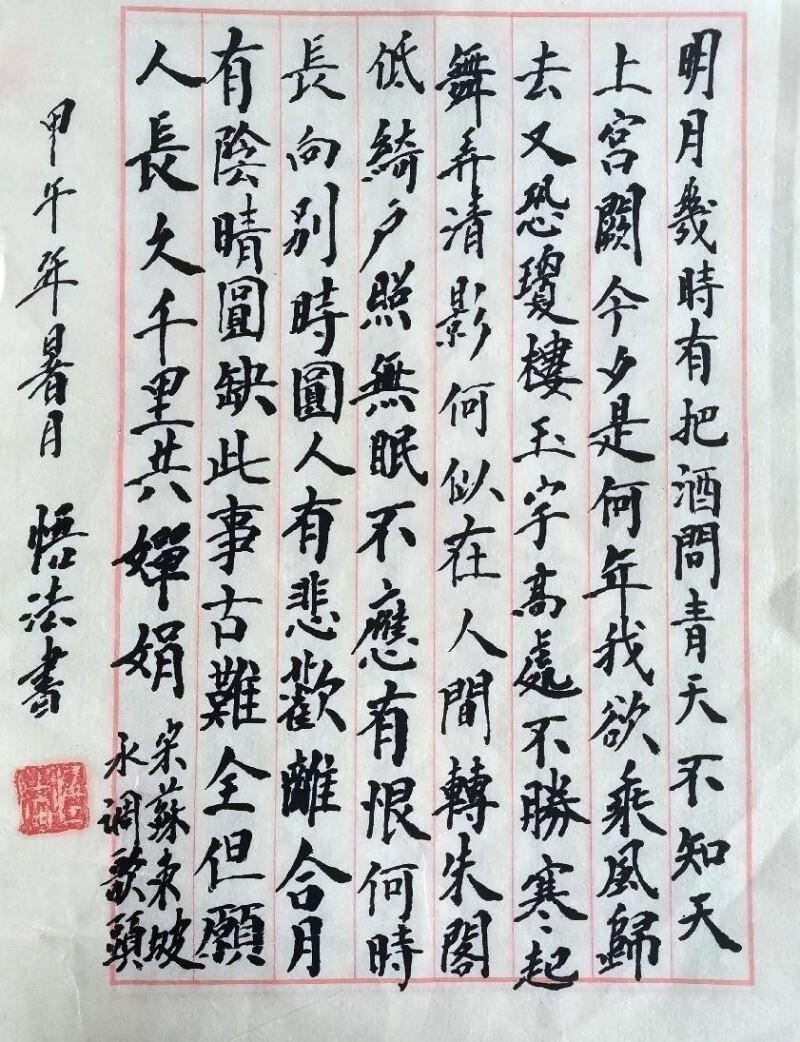 明月幾時有把酒問青天不知天
上宮闕今夕是何年我欲乘風歸
去又恐瓊樓玉宇高處不勝寒起
舞弄清影何似在人間轉朱閣
低綺户照無眠不應有恨何時
長向别時圓人有悲歡離合月
有陰晴圓缺此事古難全但願
人長久千里共嬋娟
宋蘇東坡
水調歌頭
甲午年暑月 悟法書